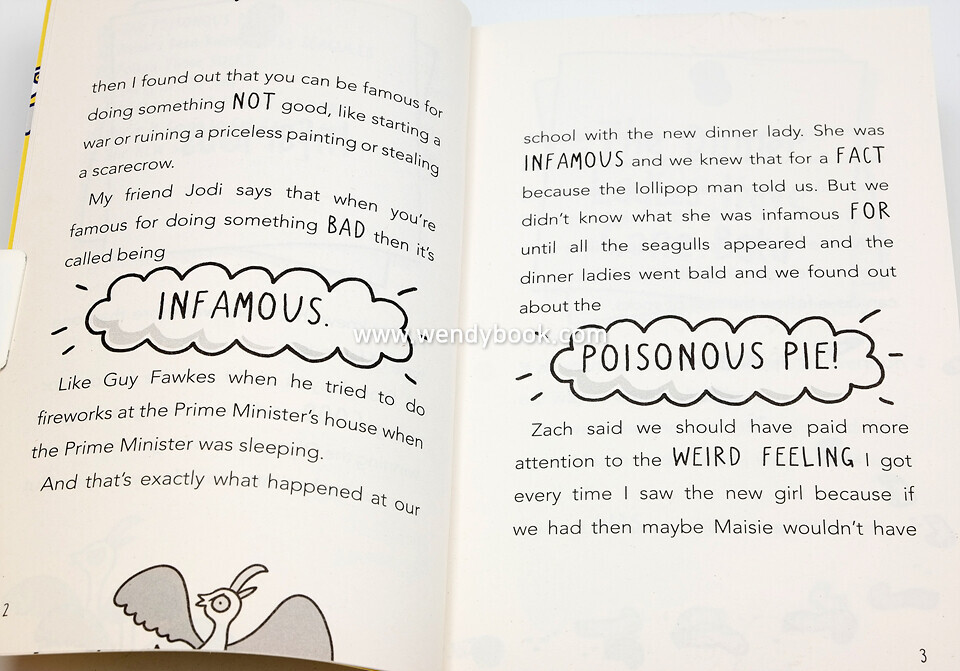 then I found out that you can be famous for
doing something NOT good, like starting a
war or ruining a priceless painting or stealing
a scarecrow.
My friend Jodi says that when you're
famous for doing something BAD then it's
called being
INFAMOUS.
Like Guy Fawkes when he tried to do
fireworks at the Prime Minister's house when
the Prime Minister was sleeping.
And that's exactly what happened at our
2
school with the new dinner lady. She was
INFAMOUS and we knew that for a FACT
because the lollipop man told us. But we
didn't know what she was infamous FOR
until all the seagulls appeared and the
dinner ladies went bald and we found out
about the
POISONOUS PIE!
Zach said we should have paid more
attention to the WEIRD FEELING I got
every time I saw the new girl because if
we had then maybe Maisie wouldn't have
3
www.wendybook.com